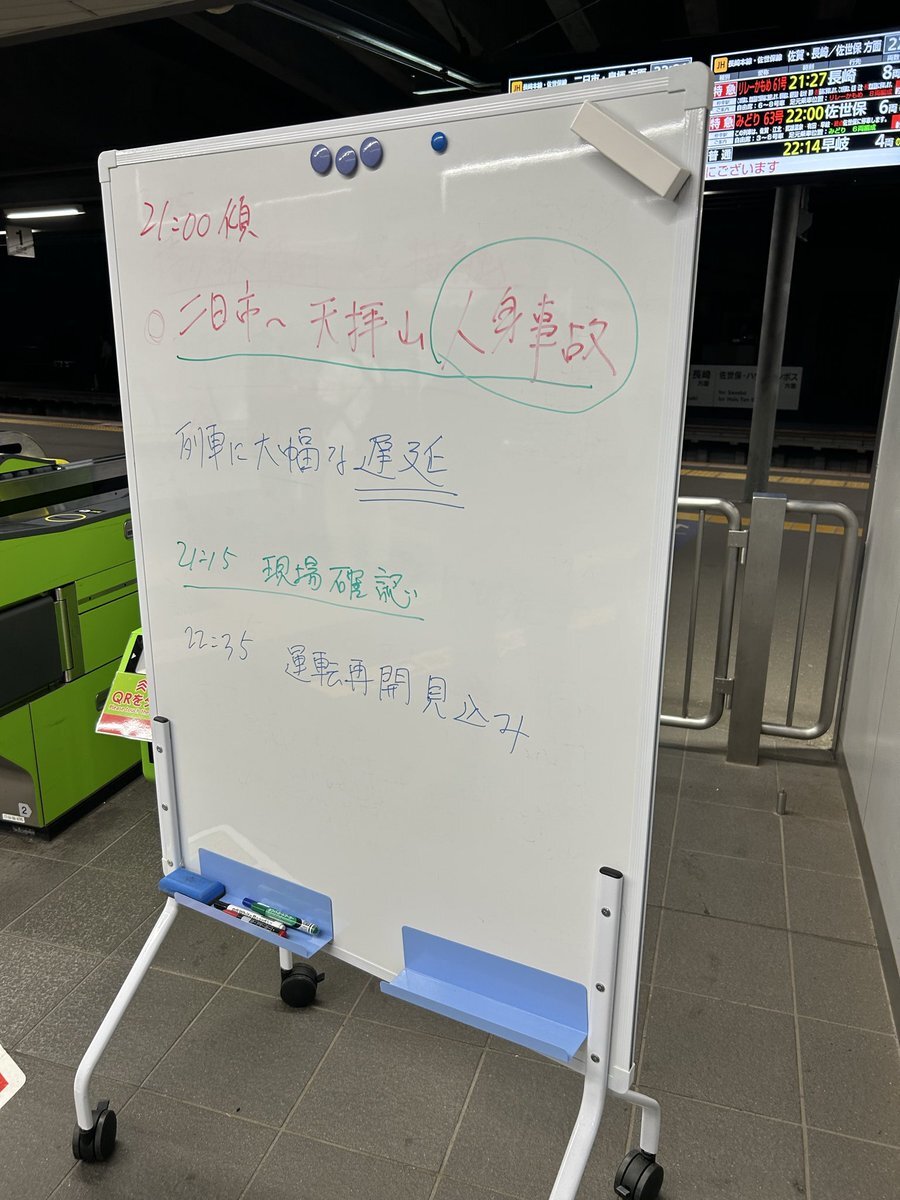 21:00 頃
○ 二日市~天拝山 人身事故
列車に大幅な遅延
21:15 現場確認
22:35 運転再開見込み
JH 長崎本線・佐世保線 佐賀・長崎/佐世保 方面
特急 リレーかもめ 61号 21:27 長崎 8両
特急 みどり 63号 22:00 佐世保 6両
普通 22:14 早岐 4両
にございます
1
QRを
2